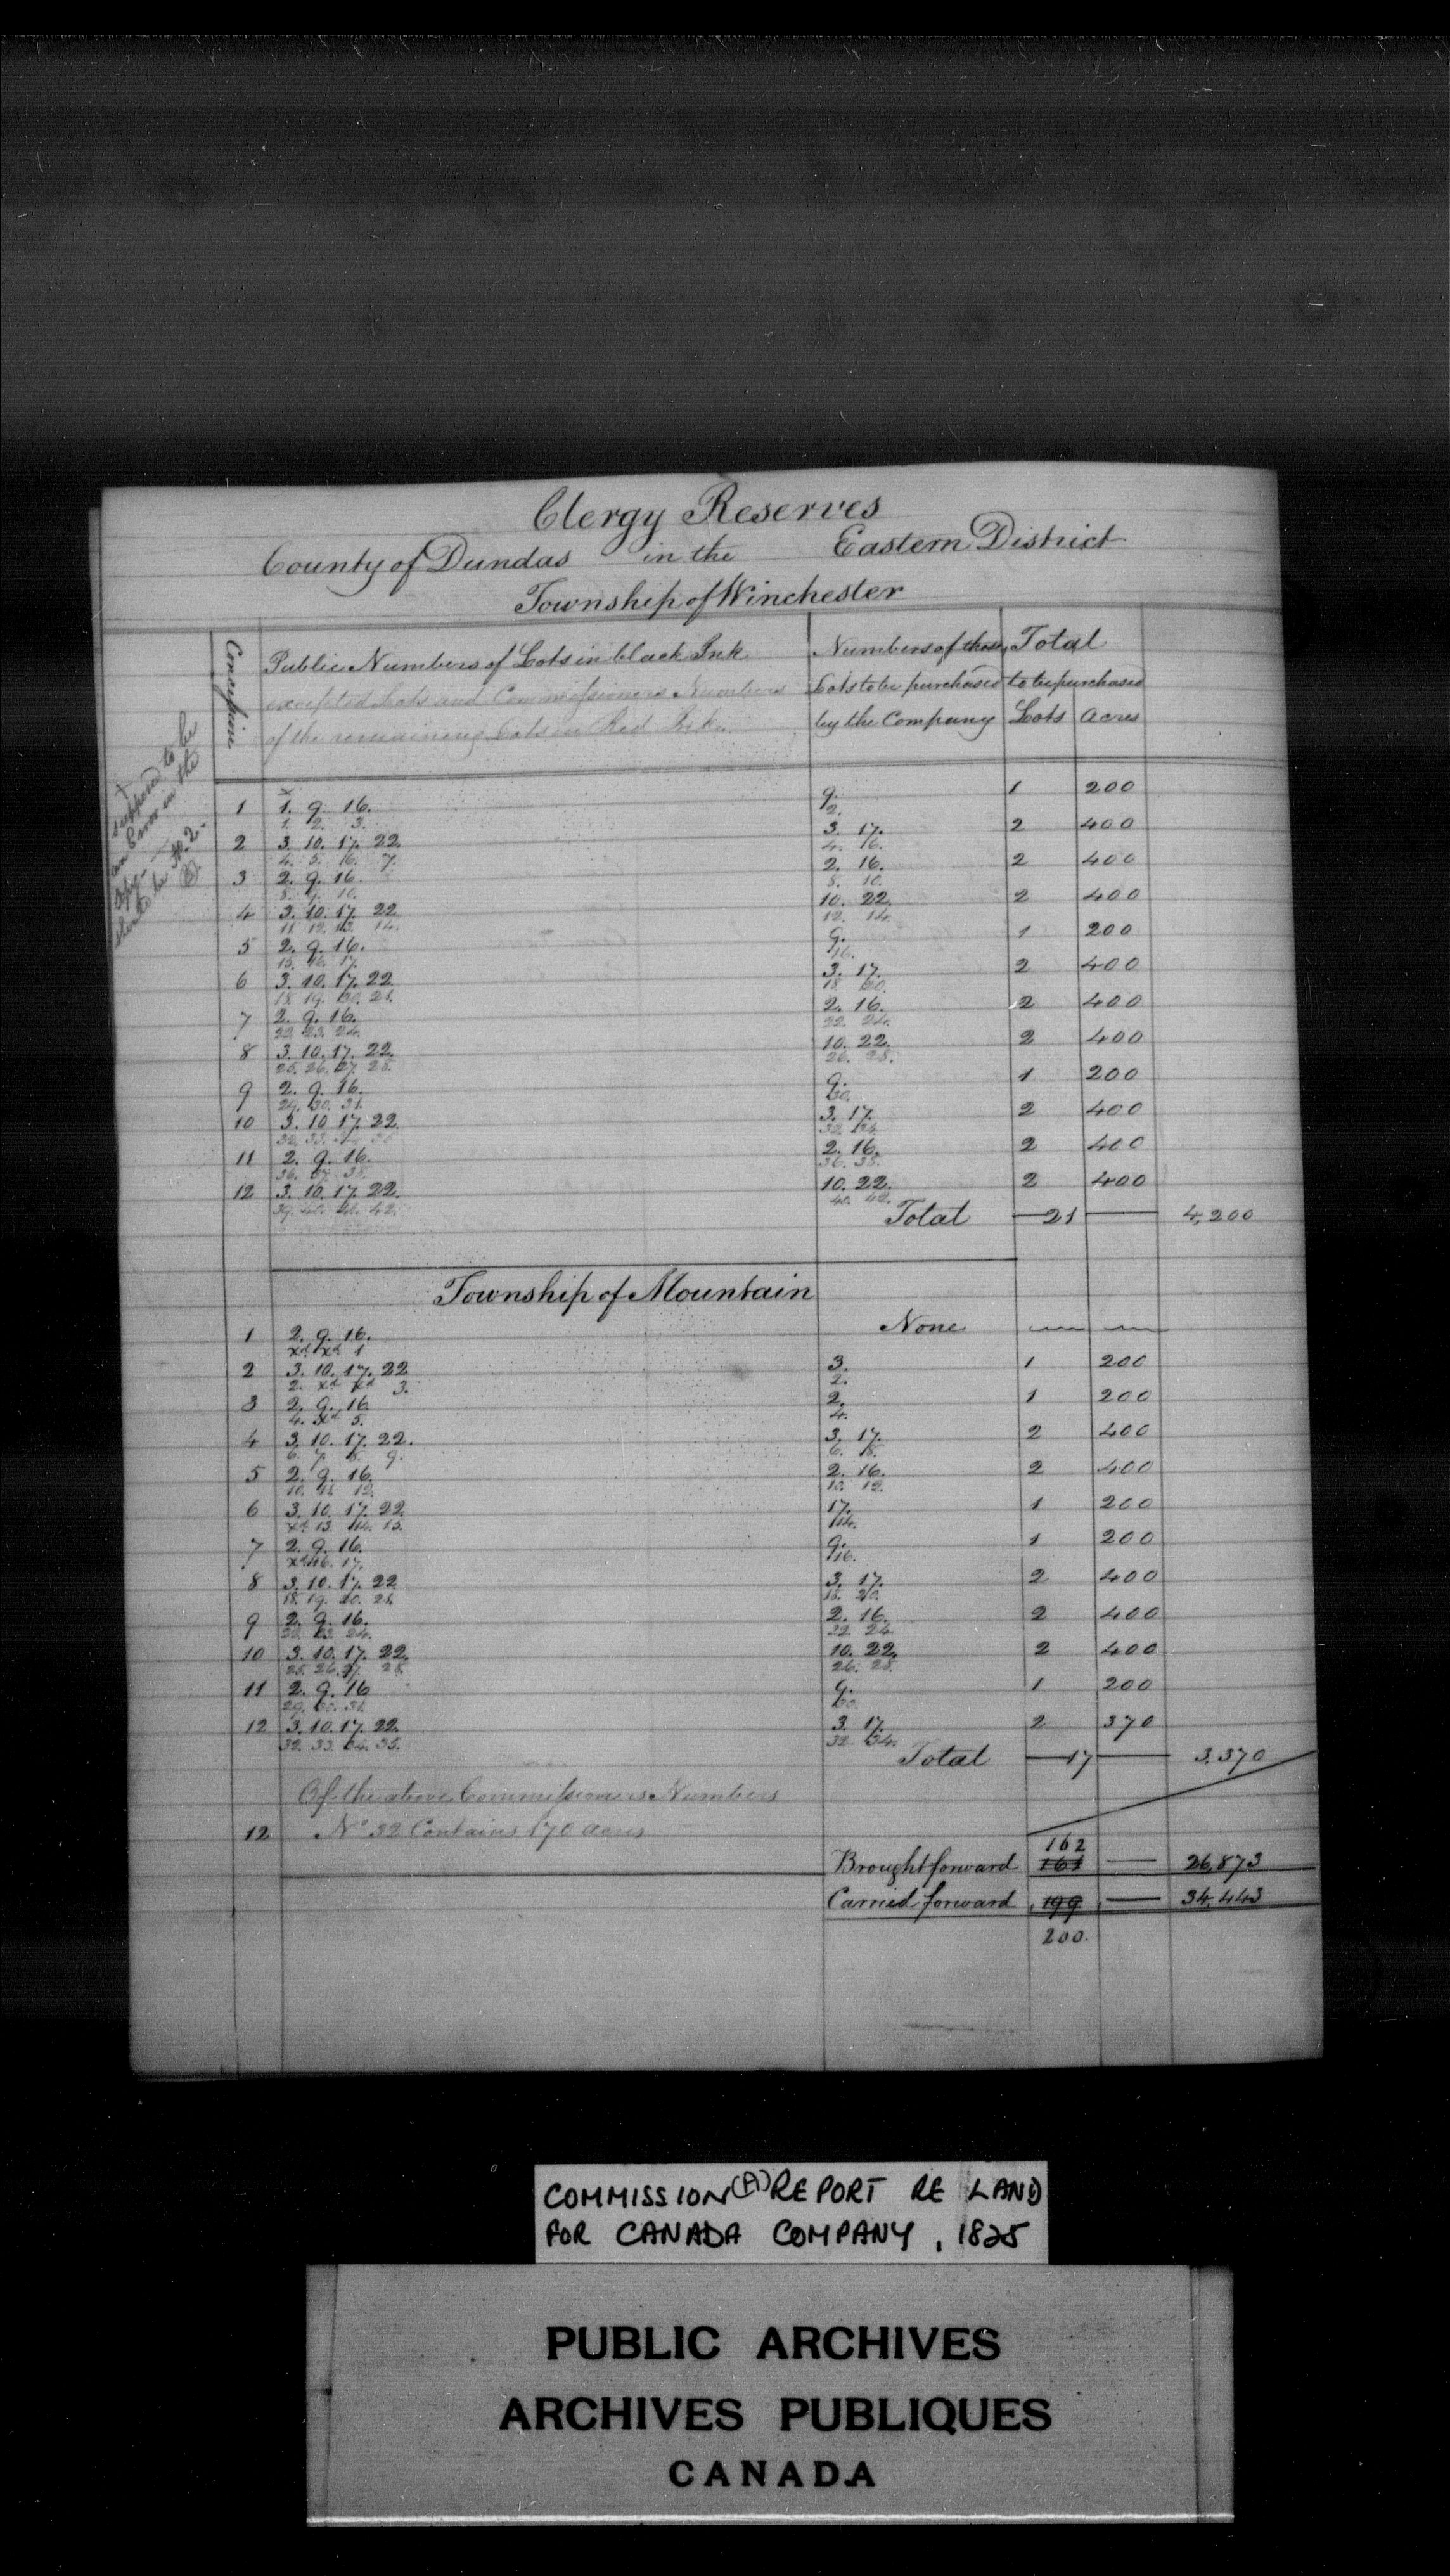 Clergy Reserves
County of Dundas in the Eastern District
Township of Winchester
Concessions
Public Numbers of Lots in black Ink
excepted Lots and Commissioners Numbers
of the remaining Lots in Red Ink.
Numbers of those
Lots to be purchased
by the Company
Total
to be purchased
Lots Acres
x
supposed to be
an Error in the
should be No. 2.
x
1 1. 9. 16. 9. 1 200
1. 2. 3. 2.
2 3. 10. 17. 22. 3. 17. 2 400
4. 5. 6. 7. 4. 6.
3 2. 9. 16. 2. 16. 2 400
8. 9. 10. 8. 10.
4 3. 10. 17. 22 10. 22. 2 400
11. 12. 13. 14. 12. 14.
5 2. 9. 16. 9. 1 200
15. 16. 17. 16.
6 3. 10. 17. 22 3. 17. 2 400
18. 19. 20. 21. 18. 20.
7 2. 9. 16. 2. 16. 2 400
22. 23. 24. 22. 24.
8 3. 10. 17. 22. 10. 22. 2 400
25. 26. 27. 28. 26. 28.
9 2. 9. 16. 9. 1 200
29. 30. 31. 30.
10 3. 10 17. 22. 3. 17. 2 400
32. 33. 32. 34.
11 2. 9. 16. 2. 16. 2 400
36. 37. 38. 36. 38.
12 3. 10. 17. 22. 10. 22. 2 400
39. 40. 41. 42. 40. 42.
Total 21 4,200
Township of Mountain
1 2. 9. 16. None
xd. xd. 1
2 3. 10. 17. 22 3. 1 200
2. xd xd 3. 2.
3 2. 9. 16 2. 1 200
4. xd 5. 4.
4 3. 10. 17. 22. 3. 17. 2 400
6. 7. 8. 9. 6. 8.
5 2. 9. 16. 2. 16. 2 400
10. 11. 12. 10. 12.
6 3. 10. 17. 22. 17. 1 200
xd. 13. 14. 15. 14.
7 2. 9. 16. 9. 1 200
xd. 16. 17. 16.
8 3. 10. 17. 22 3. 17. 2 400
18. 19. 20. 21. 18. 20.
9 2. 9. 16. 2. 16. 2 400
22. 23. 24. 22 24
10 3. 10. 17. 22. 10. 22. 2 400
25. 26. 27. 28. 26. 28.
11 2. 9. 16 9. 1 200
29. 30. 31. 30.
12 3. 10. 17. 22. 3. 17. 2 370
32. 33. 34. 35. 32. 34.
Total 17 3.370
Of the above Commissioners Numbers
12 No. 32 Contains 170 acres
162
Brought forward 161 26,873
Carried forward 199 34,443
200.
COMMISSION (A) REPORT RE LAND
FOR CANADA COMPANY, 1825
PUBLIC ARCHIVES
ARCHIVES PUBLIQUES
CANADA